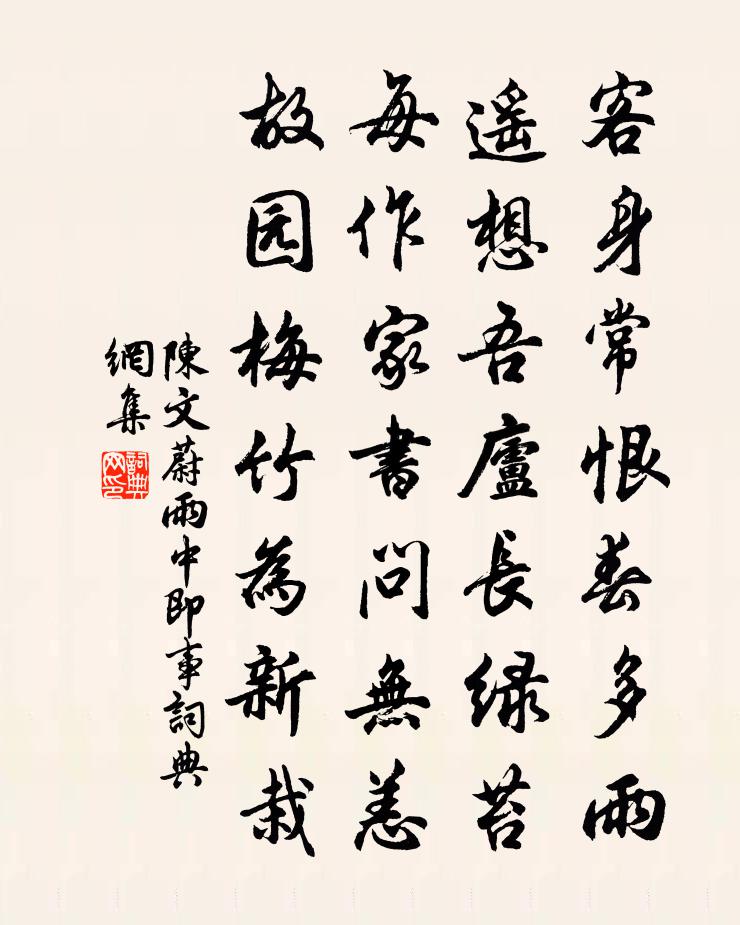 客身常恨春多雨
遥想吾廬長緑苔
每作家書問無恙
故园梅竹為新栽
陳文蔚雨中即事詞典
網集
詞典
网印